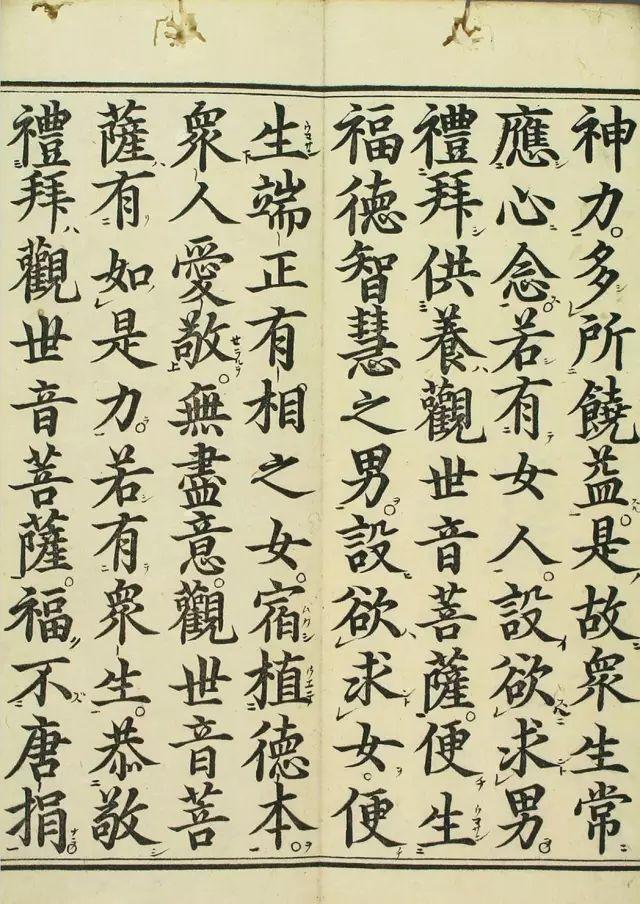 神力多所饒益是故衆生常
應心念若有女人設欲求男
禮拜供養觀世音菩薩便生
福德智慧之男設欲求女便
生端正有相之女宿植德本
衆人愛敬無盡意觀世音菩
薩有如是力若有衆生恭敬
禮拜觀世音菩薩福不唐捐